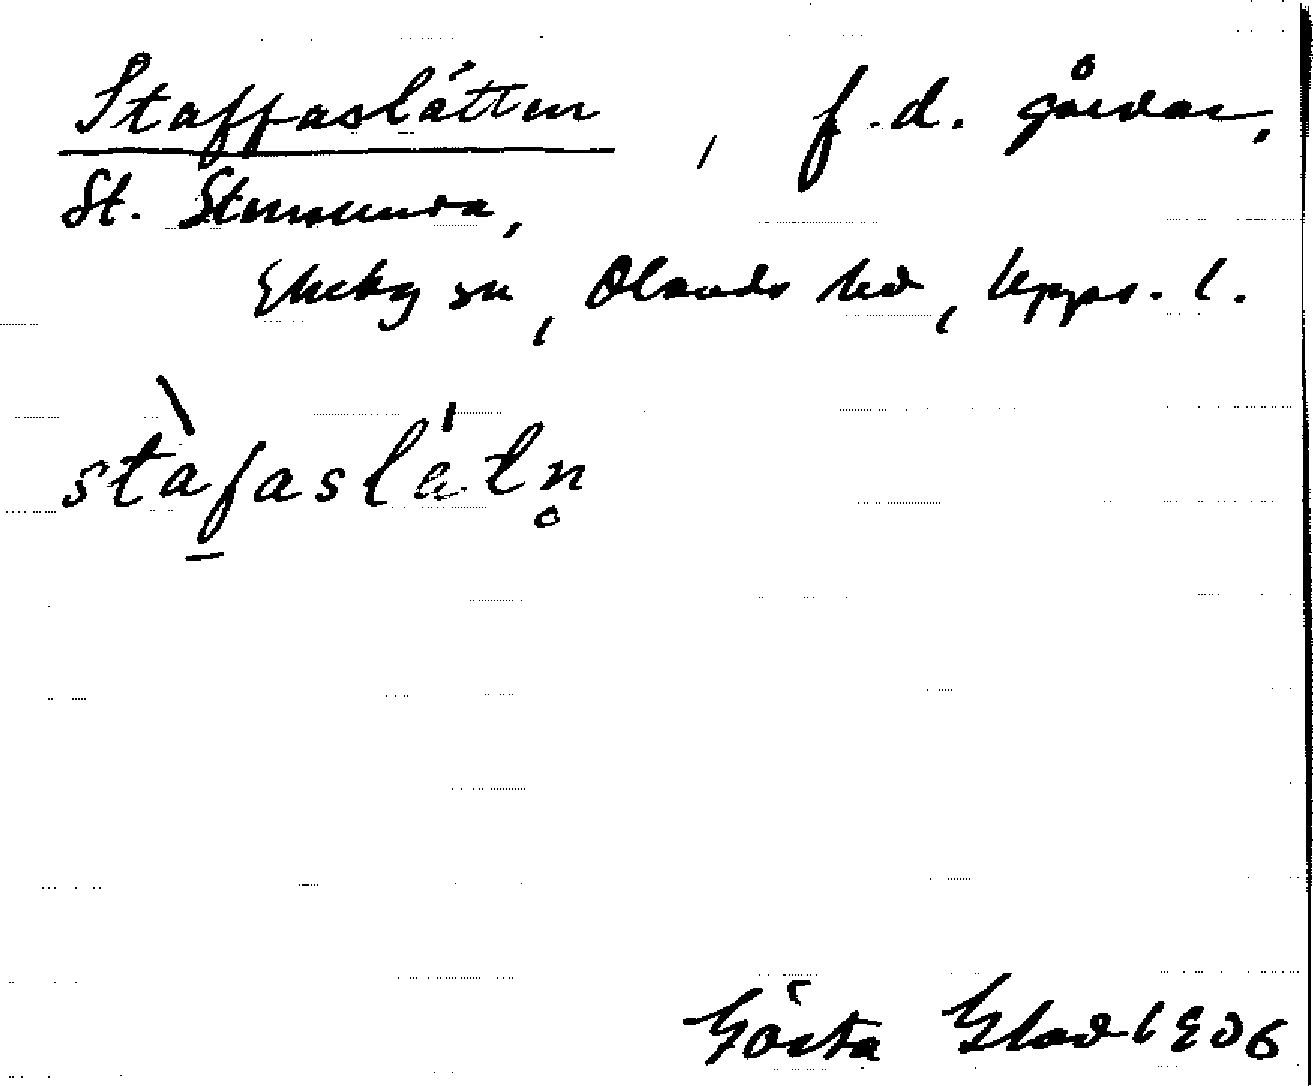 Staffaslätten, f.d. gårdar,
St. Stensunda,
Ekeby sn, Olands hd, Upps. l.
stàfaslätn̥
Gösta Glad 1906